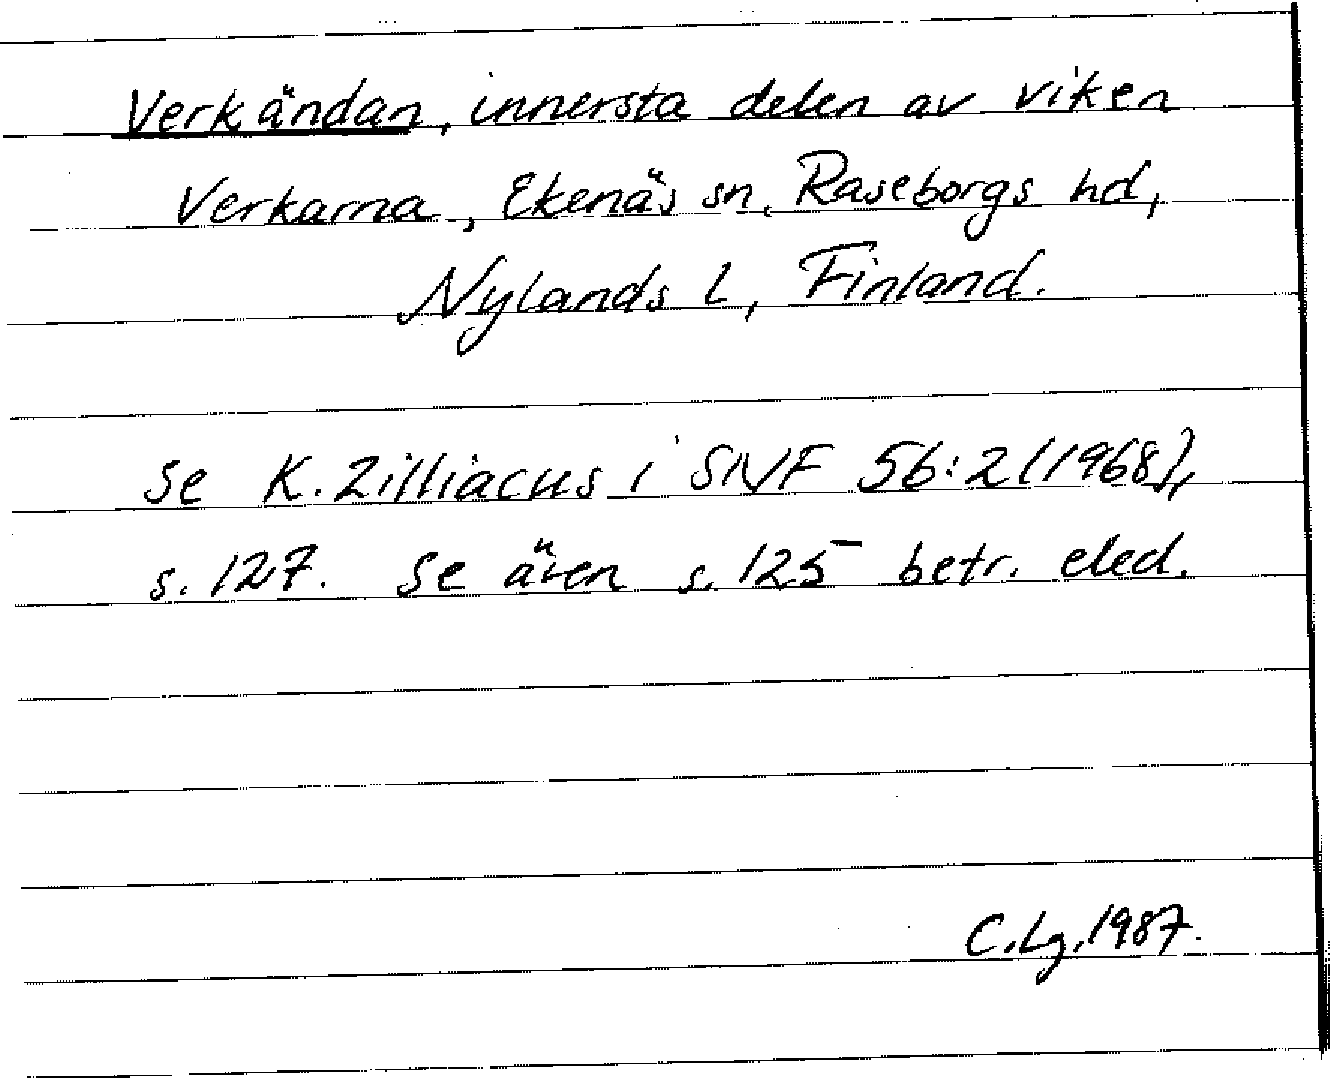 Verkändan, innersta delen av viken
Verkarna, Ekenäs sn, Raseborgs hd,
Nylands l, Finland.
Se K. Zilliacus i SNF 56:2 (1968),
s. 127. Se även s. 125 betr. eled.
C.Lg. 1987.